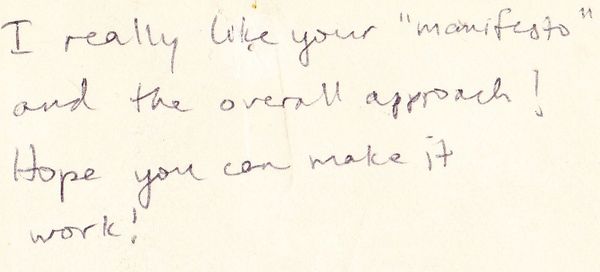 I really like your "manifesto"
and the overall approach!
Hope you can make it
work!